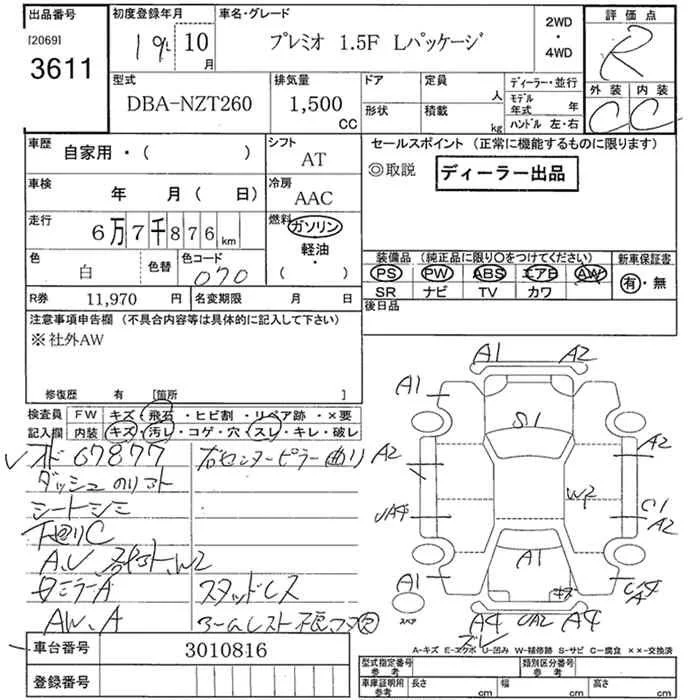 出品番号
[2069]
3611
初度登録年月
19年 10月
車名・グレード
プレミオ 1.5F Lパッケージ
2WD
・
4WD
評価点
R
外装 内装
C C
型式
DBA-NZT260
排気量
1,500
CC
ドア
形状
定員
人
積載
kg
ディーラー・並行
モデル年式 年
ハンドル 左・右
車歴
自家用・( )
シフト
AT
車検
年 月( 日)
冷房
AAC
走行
6万7千876km
燃料
ガソリン
軽油
・
( )
色
白
色替
色コード
070
R券 11,970 円
名変期限 月 日
セールスポイント (正常に機能するものに限ります)
◎取説
ディーラー出品
装備品 (純正品に限り○をつけてください)
PS PW ABS エアB AW
SR ナビ TV カワ
新車保証書
有・無
後日品
注意事項申告欄 (不具合内容等は具体的に記入して下さい)
※社外AW
修復歴 有 [箇所 ]
検査員
記入欄
FW キズ・飛石・ヒビ割・リペア跡・×要
内装 キズ・汚レ・コゲ・穴・スレ・キレ・破レ
67877
右センターピラー曲り
ダッシュ
シートシミ
下廻りC
A、U、
W2
ミラーA
スタッドレス
AW、A
アームレスト
A1 A2
A1
S1
A2
A2
W2
UA4
C1
A2
A1
A1
キズ
A
スペア
A4 UA2 A4
ズレ
A-キズ E-エクボ U-凹み W-補修跡 S-サビ C-腐食 ××-交換済
車台番号
3010816
登録番号
型式指定番号
参考
類別区分番号
参考
車庫証明所
参考
長さ cm
幅 cm
高さ cm